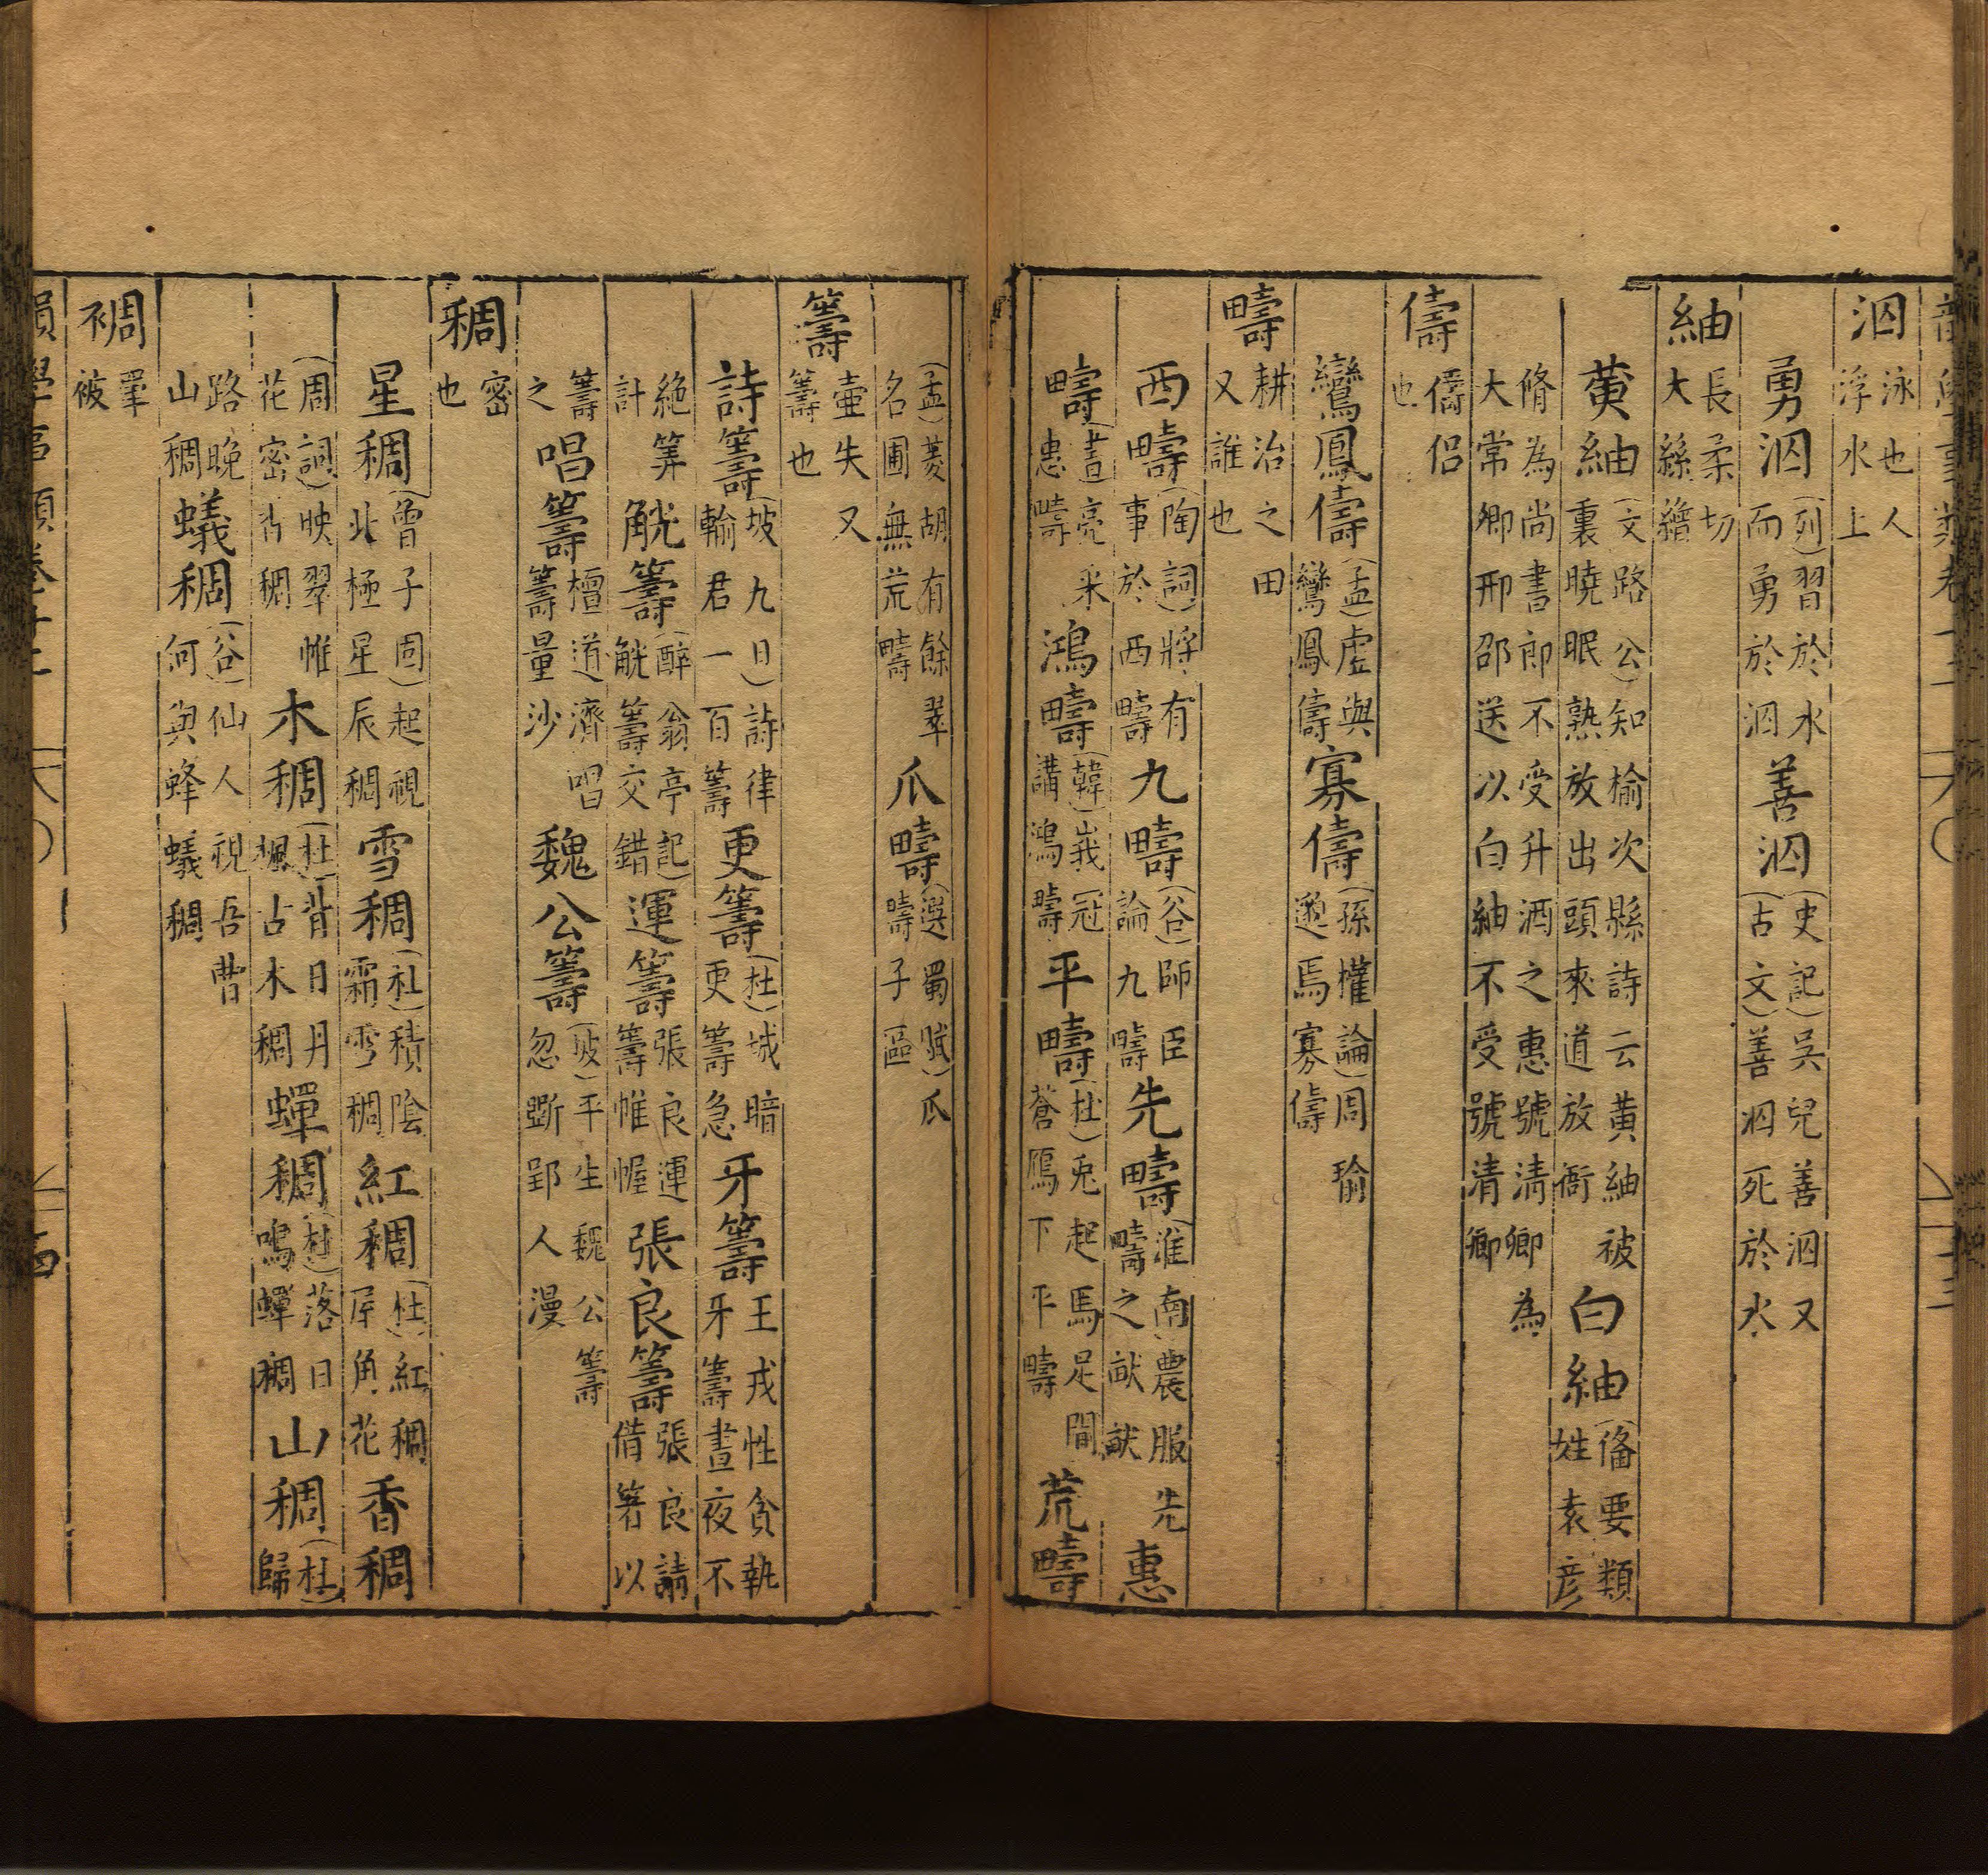 泅 泳也人浮水上
勇泅 (列)習於水而勇於泅 善泅 (史記)吳兒善泅又(古文)善泅死於水
紬 長柔切大絲繒
黄紬 (文路公)知榆次縣詩云黄紬被裏曉眠熟放出頭來道放衙 白紬 (俻要類)姓袁彦
脩為尚書郎不受升酒之惠號清卿為大常卿邢邵送以白紬不受號清卿
儔 儕侣也
鸞鳳儔 (孟)虚與鸞鳳儔 寡儔 (孫權論)周瑜邈焉寡儔
疇 耕治之田又誰也
西疇 (陶詞)將有事於西疇 九疇 (谷)師臣論九疇 先疇 (淮南)農服先疇之畝畝 惠
疇 (書)亮采惠疇 鴻疇 (韓)峩冠講鴻疇 平疇 (杜)兎起馬足間蒼鴈下平疇 荒疇
(孟)菱胡有餘翠名圃無荒疇 爪疇 (選蜀賦)爪疇子區
籌 壷失又籌也
詩籌 (坡九日)詩律輸君一百籌 更籌 (杜)城暗更籌急 牙籌 王戎性貪執牙籌晝夜不
絶筭計 觥籌 (醉翁亭記)觥籌交錯 運籌 張良運籌帷幄 張良籌 張良請借箸以
籌之 唱籌 檀道濟唱籌量沙 魏公籌 (坡)平生魏公籌忽斲郢人漫
稠 密也
星稠 (曾子固)起視北極星辰稠 雪稠 (杜)積陰霜雪稠 紅稠 (杜)紅稠屋角花 香稠
(周詞)映翠帷花密香稠 木稠 (杜)背日丹楓古木稠 蟬稠 (杜)落日鳴蟬稠 山稠 (杜)歸
路晚山稠 蟻稠 (谷)仙人視吾曹何與蜂蟻稠
裯 單被